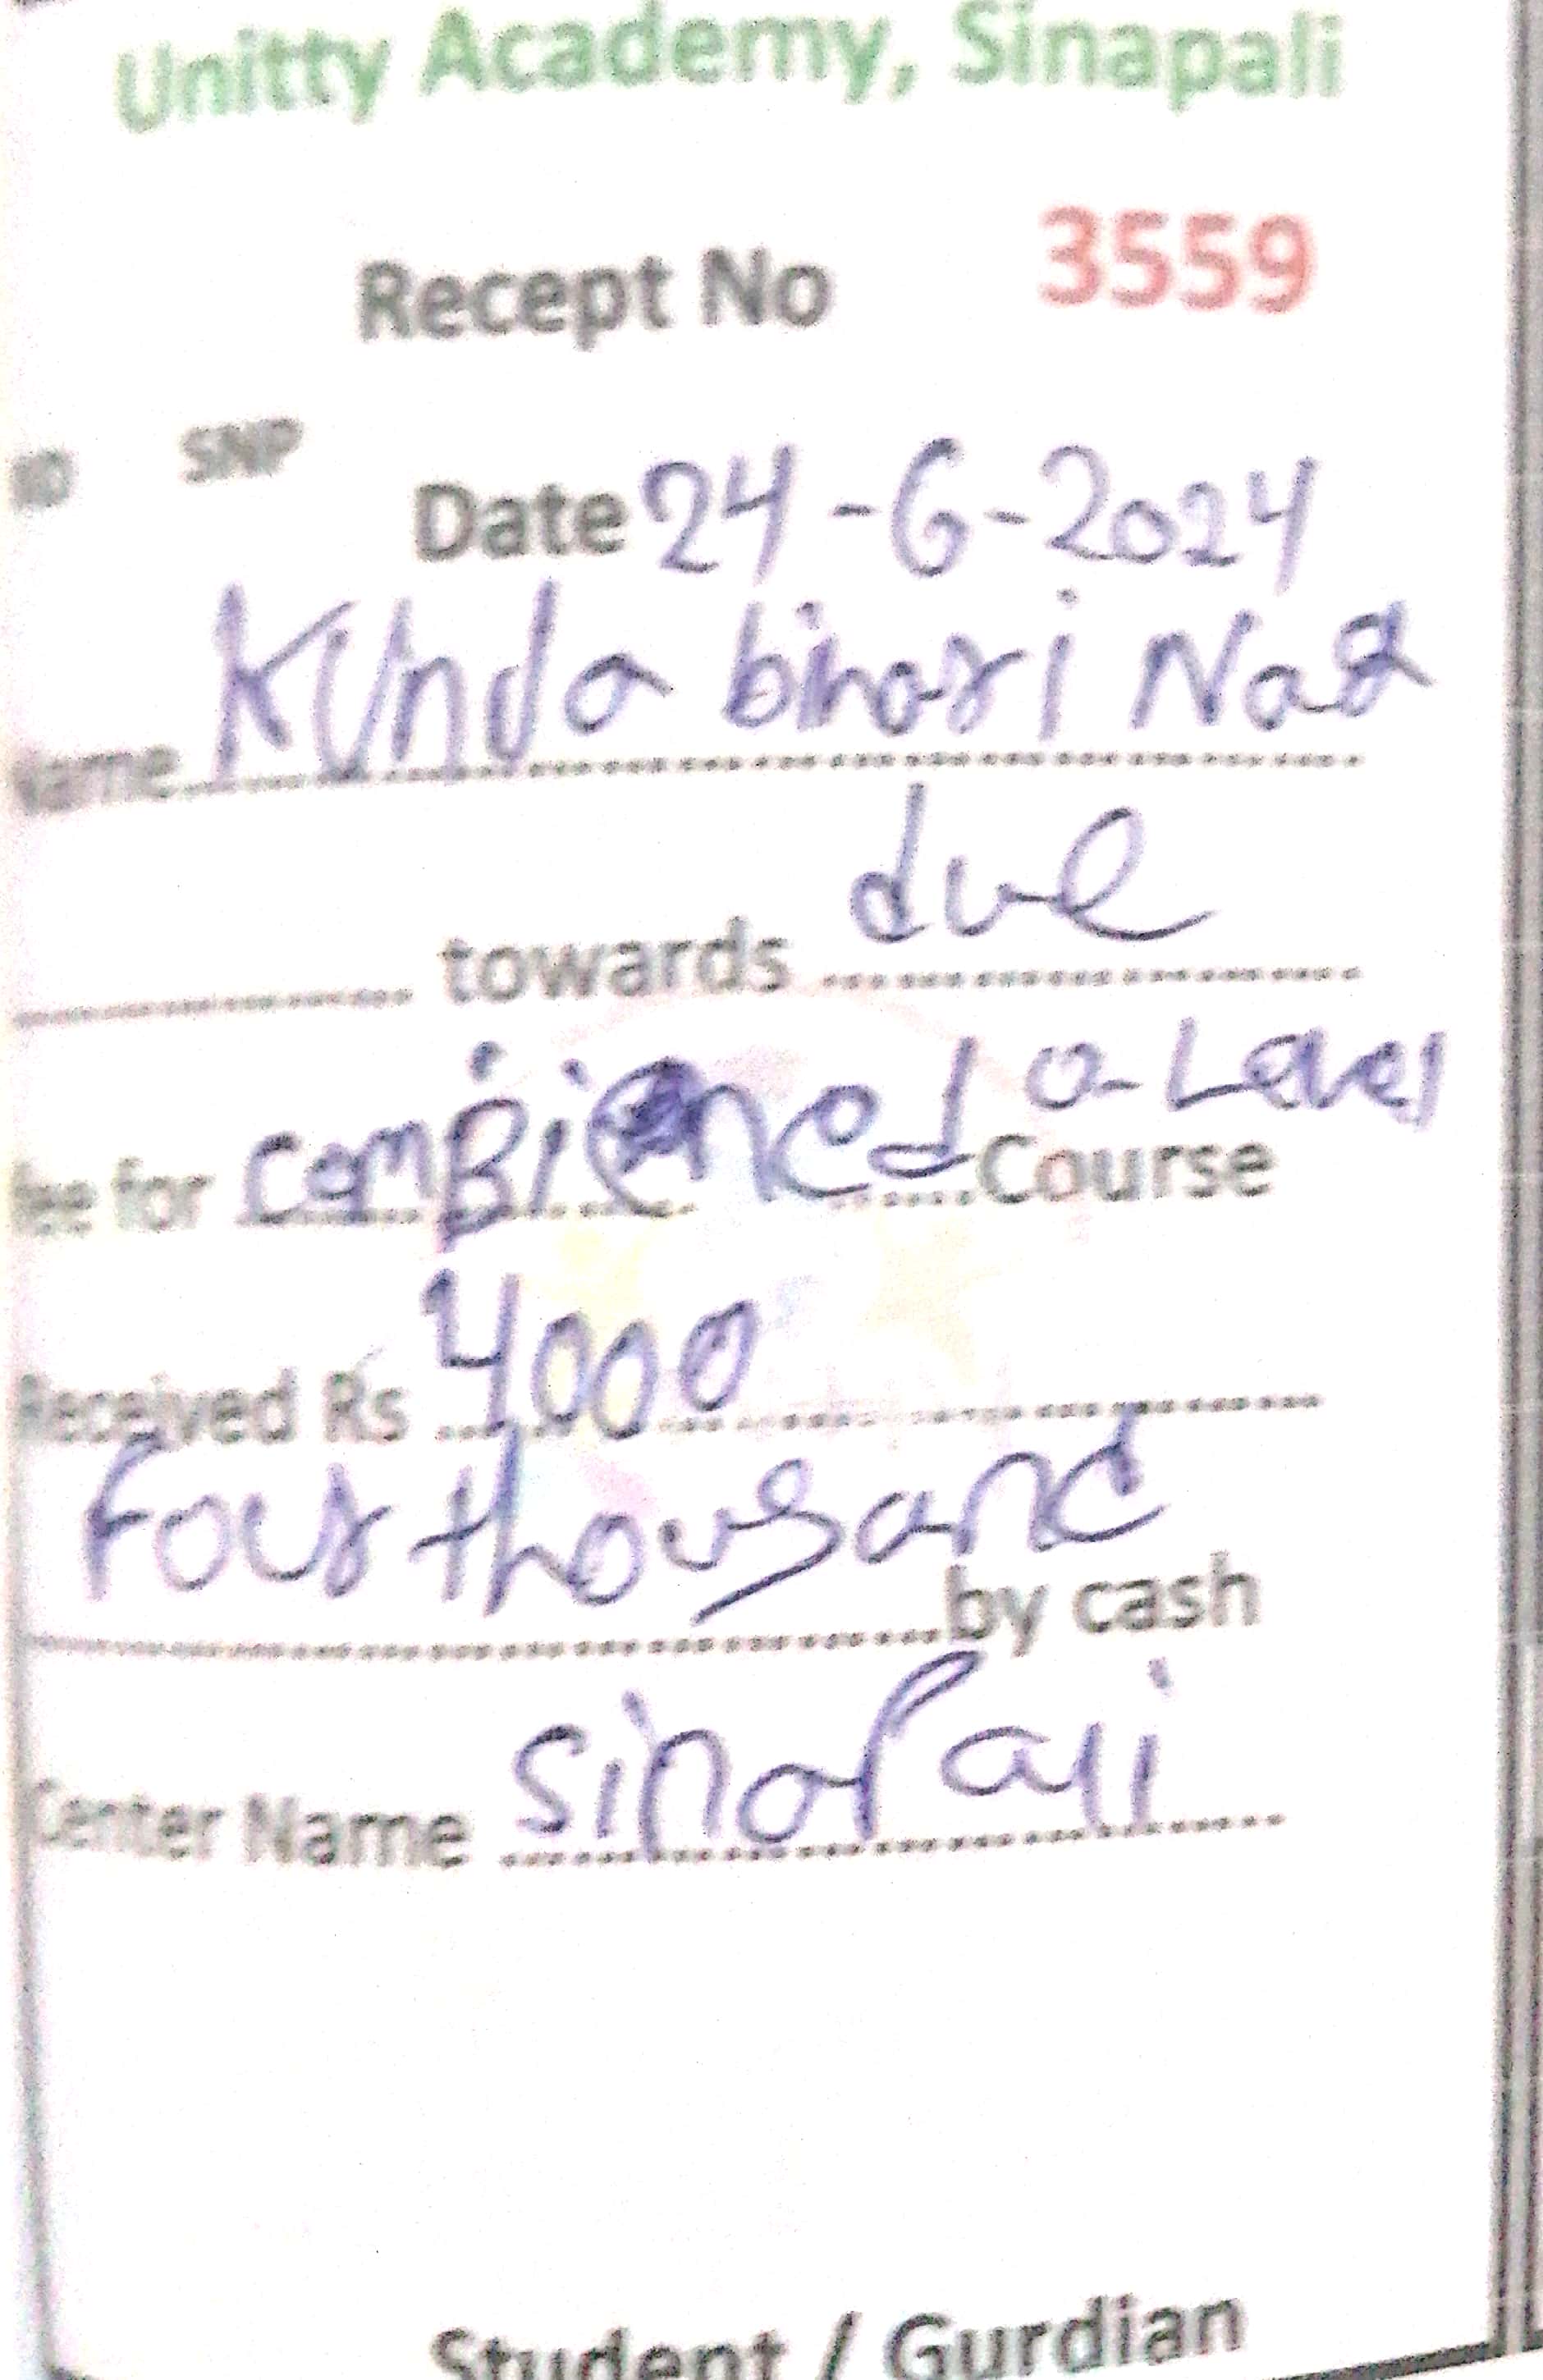 Unitty Academy, Sinapali
Recept No 3559
ID SNP
Date 24-6-2024
Name Kunda bihari
towards due
fee for ComBined O-Level Course
Received Rs 4000
Four thousand
by cash
Center Name SinaPali
Student / Gurdian